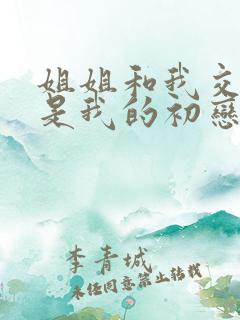 姐姐和我交
是我的初戀
李青城
未经同意禁止转载